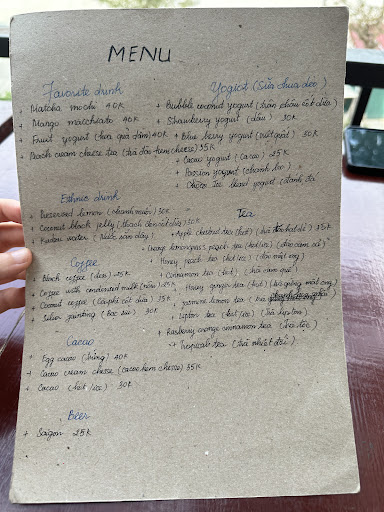 MENU
Favorite drink
+ Matcha mochi 40K
+ Mango matchiato 40K
+ Fruit yogurt (hoa quả dầm) 40K
+ Peach cream cheese tea (trà đào kem cheese) 35K
Yogiot (Sữa chua dẻo)
+ Bubble coconut yogurt (trân châu cốt dừa)
+ Strawberry yogurt (dâu) 30K
+ Blue berry yogurt (việt quất) 30K
+ Cacao yogurt (cacao) 25K
+ Passion yogurt (chanh leo) "
+ Choco ice yogurt (đánh đá)
Ethnic drink
+ Preserved lemon (chanh muối) 30K
+ Coconut black jelly (thạch đen cốt dừa) 30K
+ Kudzu water (nước sắn dây)
Coffee
+ Black coffee (đen) 25K
+ Coffee with condensed milk (nâu) 25K
+ Coconut coffee (cà phê cốt dừa) 35K
+ Silver printing (bạc xỉu) 30K
Cacao
+ Egg cacao (trứng) 40K
+ Cacao cream cheese (cacao kem cheese) 35K
+ Cacao (hot/ice) 30K
Beer
+ Saigon 25K
Tea
+ Apple chestnut tea (hot) (trà táo hạt dẻ) 25K
+ Orange lemongrass peach tea (hot/ice) (đào cam sả) "
+ Honey peach tea (hot/ice) (đào mật ong)
+ Cinnamon tea (hot) (trà cam quế)
+ Honey ginger tea (hot) (trà gừng mật ong)
+ Jasmine lemon tea (trà
+ Lipton tea (hot/ice) (trà lipton)
+ Rasberry orange cinnamon tea
+ Tropicals tea (trà nhiệt đới)